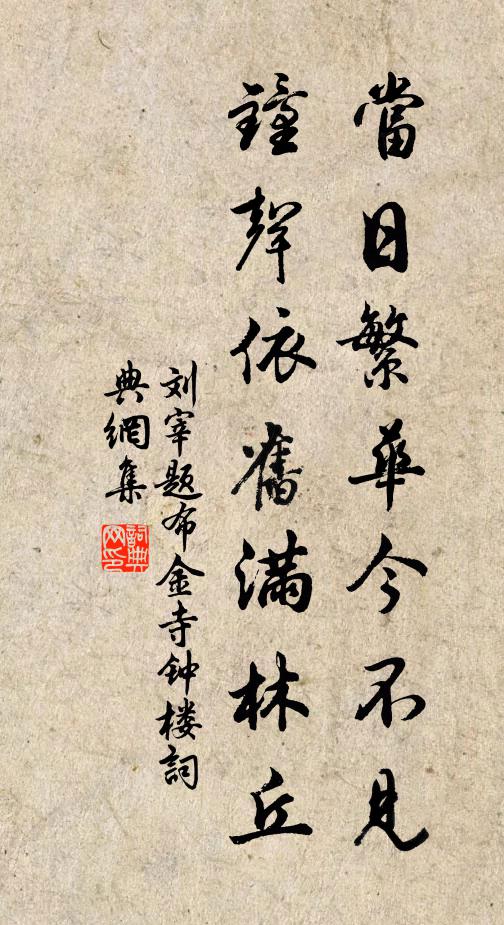 當日繁華今不見
鐘聲依舊滿林丘
刘宰题布金寺钟楼詞
典網集
詞典
网印